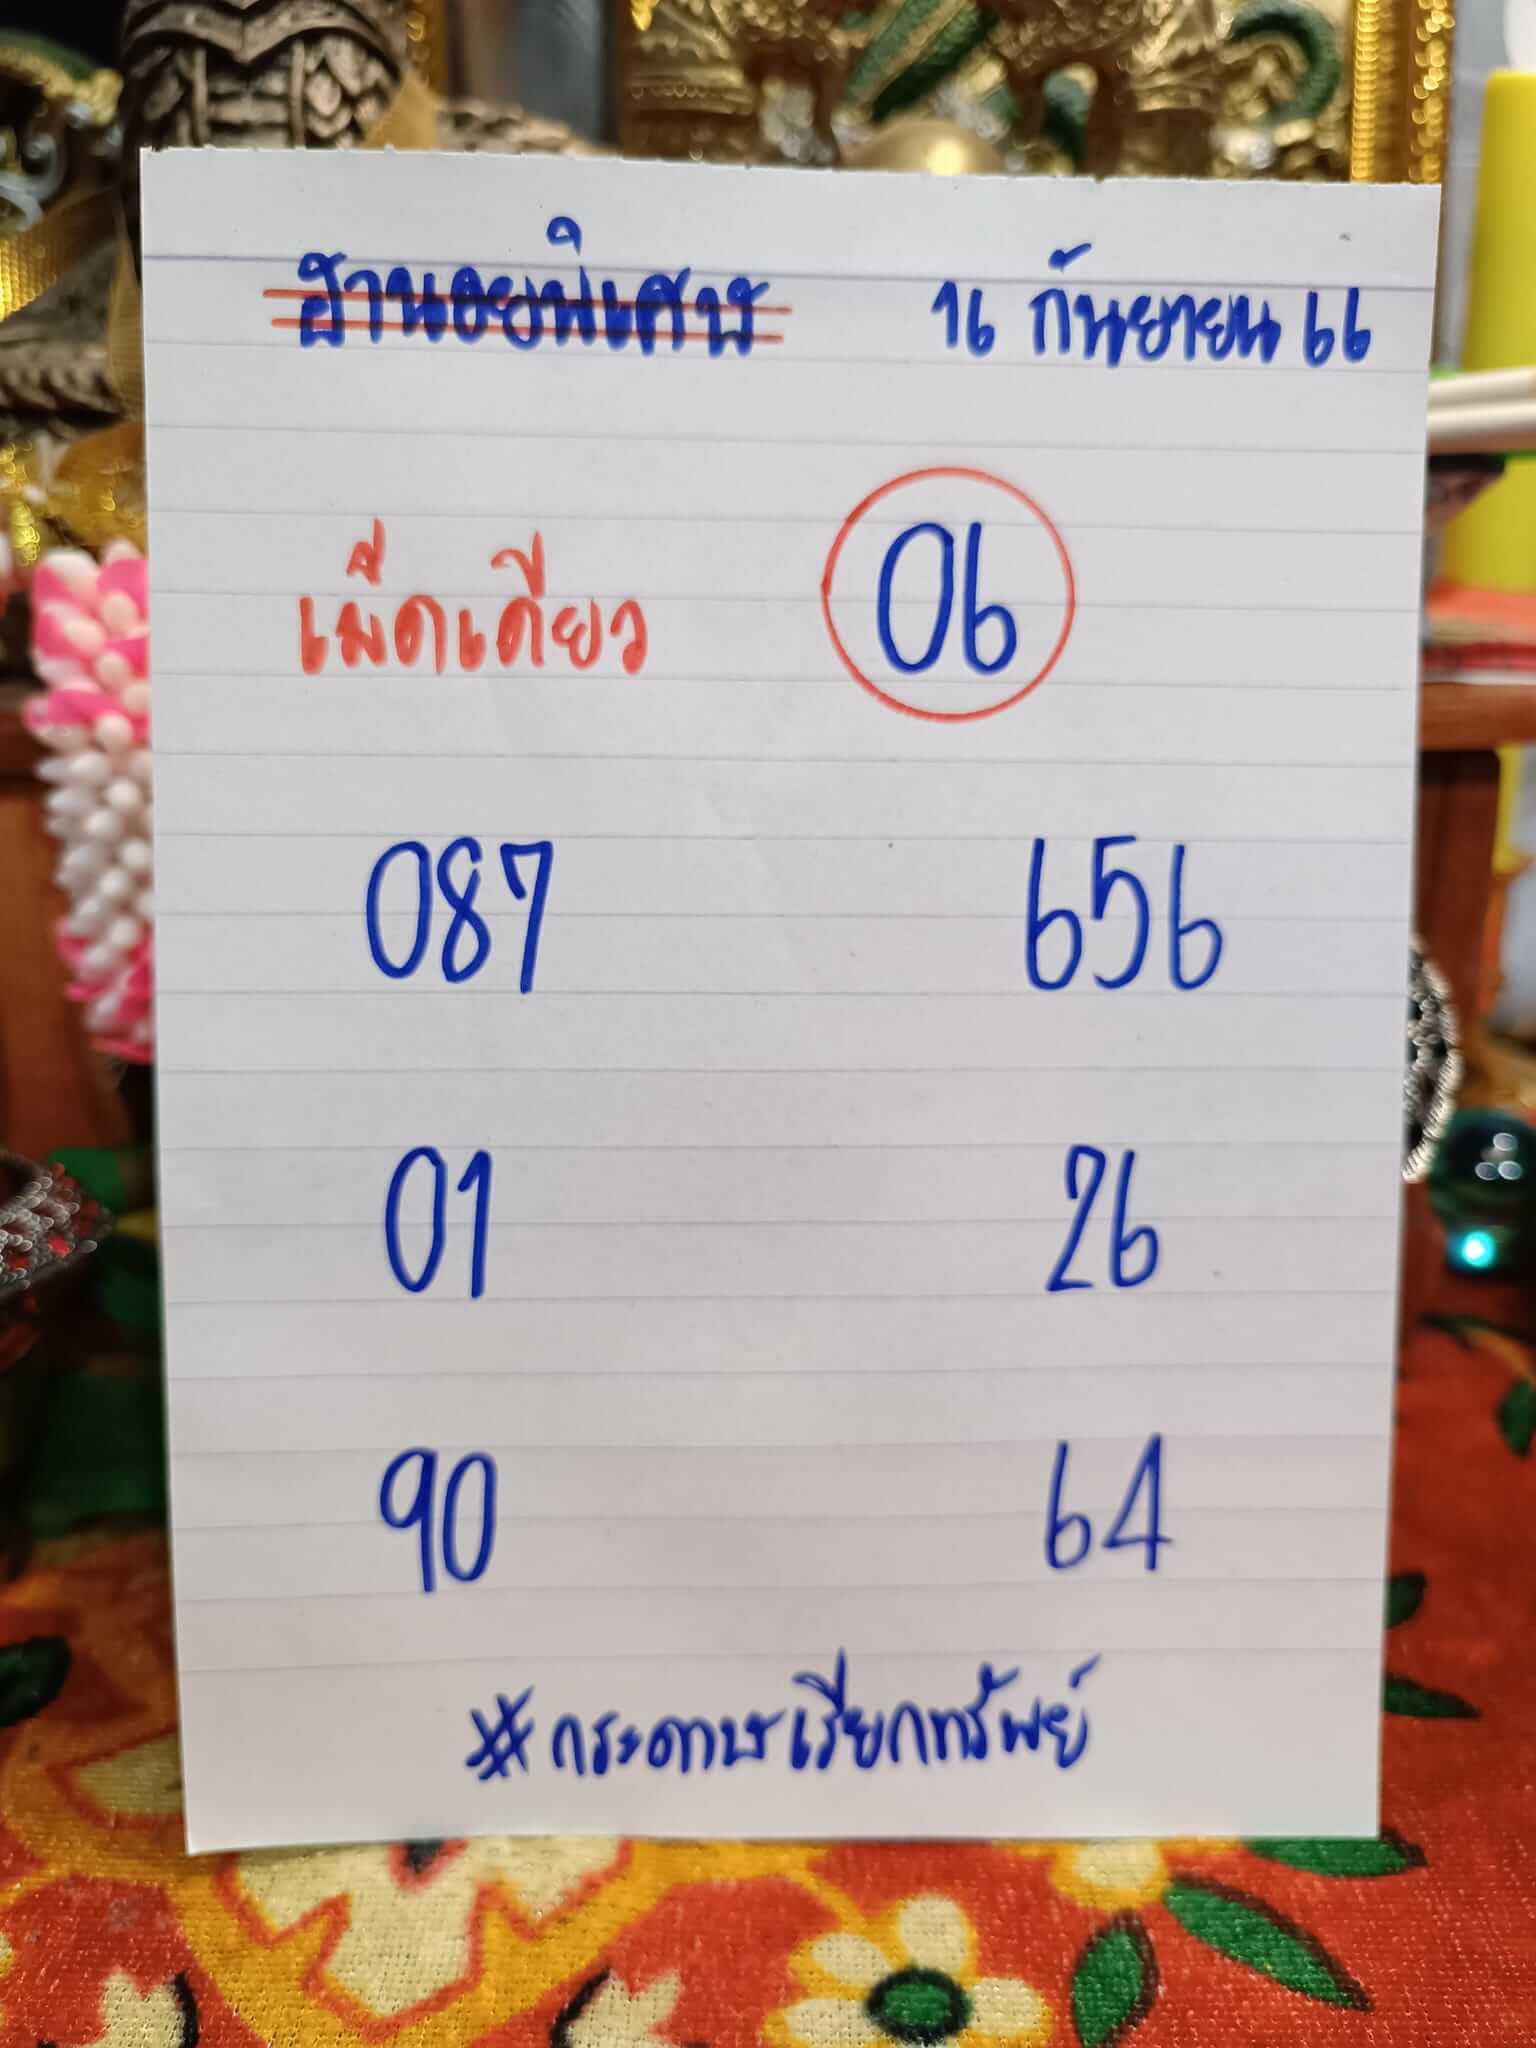 ฐานอยพิเศษ 16 กันยายน 66
เม็ดเดียว 06
087 656
01 26
90 64
#กระดาษเรียกทรัพย์